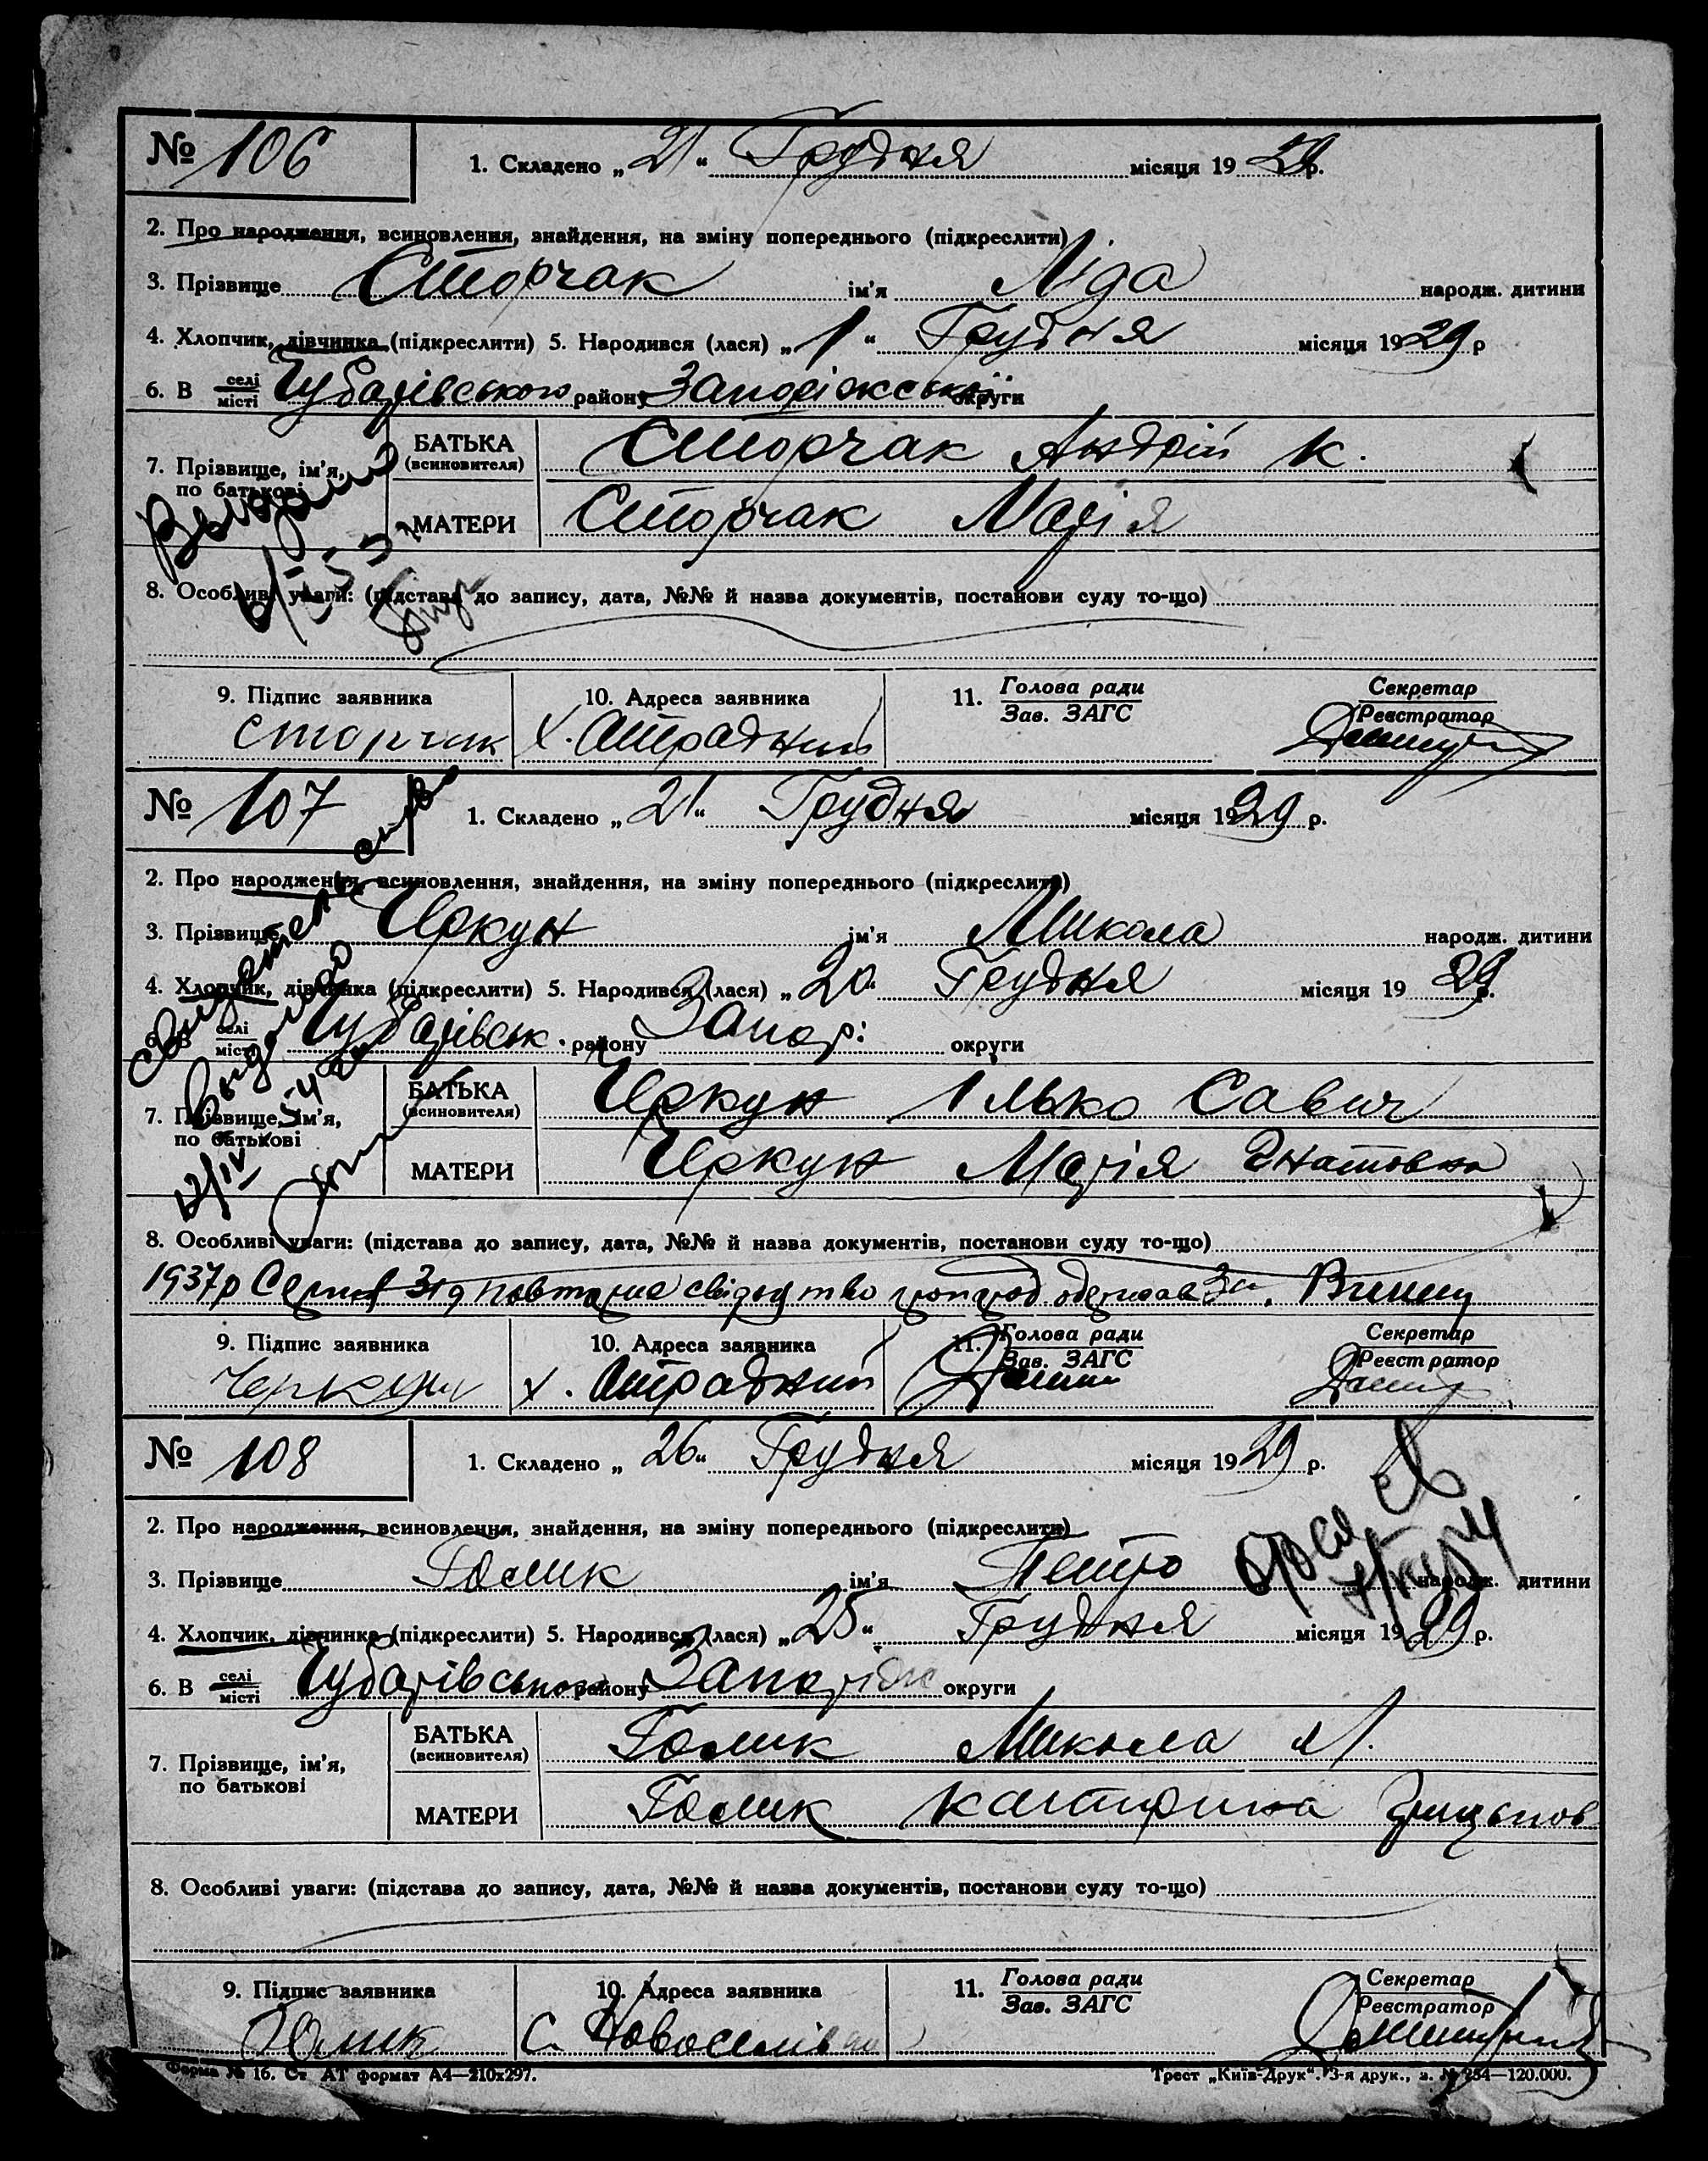 № 106 1. Складено „21“ Грудня місяця 1929р.
2. Про народження, всиновлення, знайдення, на зміну попереднього (підкреслити)
3. Прізвище Сторчак ім'я Ліда народж. дитини
4. Хлопчик, дівчинка (підкреслити) 5. Народився (лася) „1“ Грудня місяця 1929 р
6. В селі місті Чубарівського району Запоріжської округи
7. Прізвище, ім'я, по батькові
БАТЬКА (всиновителя) Сторчак Андрій К.
МАТЕРИ Сторчак Марія
8. Особливі уваги: (підстава до запису, дата, №№ й назва документів, постанови суду то-що)
9. Підпис заявника 10. Адреса заявника 11. Голова ради Зав. ЗАГС Секретар Реєстратор
Сторчак х. Атрадний
№ 107 1. Складено „21“ Грудня місяця 1929 р.
2. Про народження, всиновлення, знайдення, на зміну попереднього (підкреслити)
3. Прізвище Чркун ім'я Микола народж. дитини
4. Хлопчик, дівчинка (підкреслити) 5. Народився (лася) „20“ Грудня місяця 1929р.
6. В селі місті Чубарівськ. району Запор: округи
7. Прізвище, ім'я, по батькові
БАТЬКА (всиновителя) Чркун Ілько Савич
МАТЕРИ Чркун Марія Гнатовна
8. Особливі уваги: (підстава до запису, дата, №№ й назва документів, постанови суду то-що)
1937р 31д повторне свідоцтво
9. Підпис заявника 10. Адреса заявника 11. Голова ради Зав. ЗАГС Секретар Реєстратор
Черкун х. Атрадний
№ 108 1. Складено „26“ Грудня місяця 1929 р.
2. Про народження, всиновлення, знайдення, на зміну попереднього (підкреслити)
3. Прізвище Голик ім'я Петро народж. дитини
4. Хлопчик, дівчинка (підкреслити) 5. Народився (лася) „25“ Грудня місяця 1929 р.
6. В селі місті Чубарівського району Запоріж округи
7. Прізвище, ім'я, по батькові
БАТЬКА (всиновителя) Голик Микола М.
МАТЕРИ Голик Катирина
8. Особливі уваги: (підстава до запису, дата, №№ й назва документів, постанови суду то-що)
9. Підпис заявника 10. Адреса заявника 11. Голова ради Зав. ЗАГС Секретар Реєстратор
Голик С. Новоселівка
Форма № 16. Ст. АТ формат А4—210х297. Трест „Київ-Друк“. 3-я друк., з. № 254—120.000.